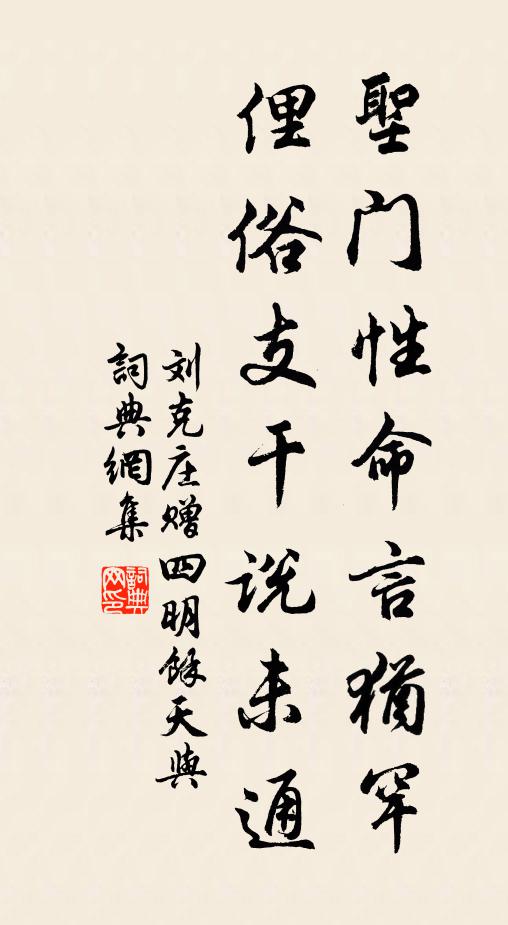 聖门性命言猶罕
俚俗支干说未通
刘克庄赠四明餘天與
詞典網集
詞典网印